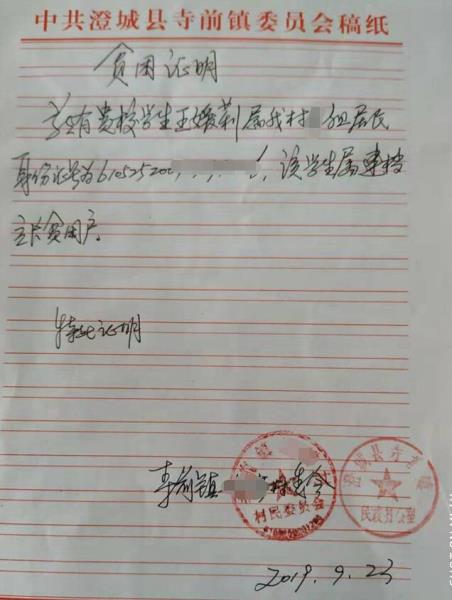 中共澄城县寺前镇委员会稿纸
贫困证明
兹有贵校学生王媛莉属我村 组居民
身份证号为6105252001 该学生属建档
立卡贫困户
特此证明
寺前镇 村委会
村民委员会
澄城县寺前镇
民政办公室
2019.9.23